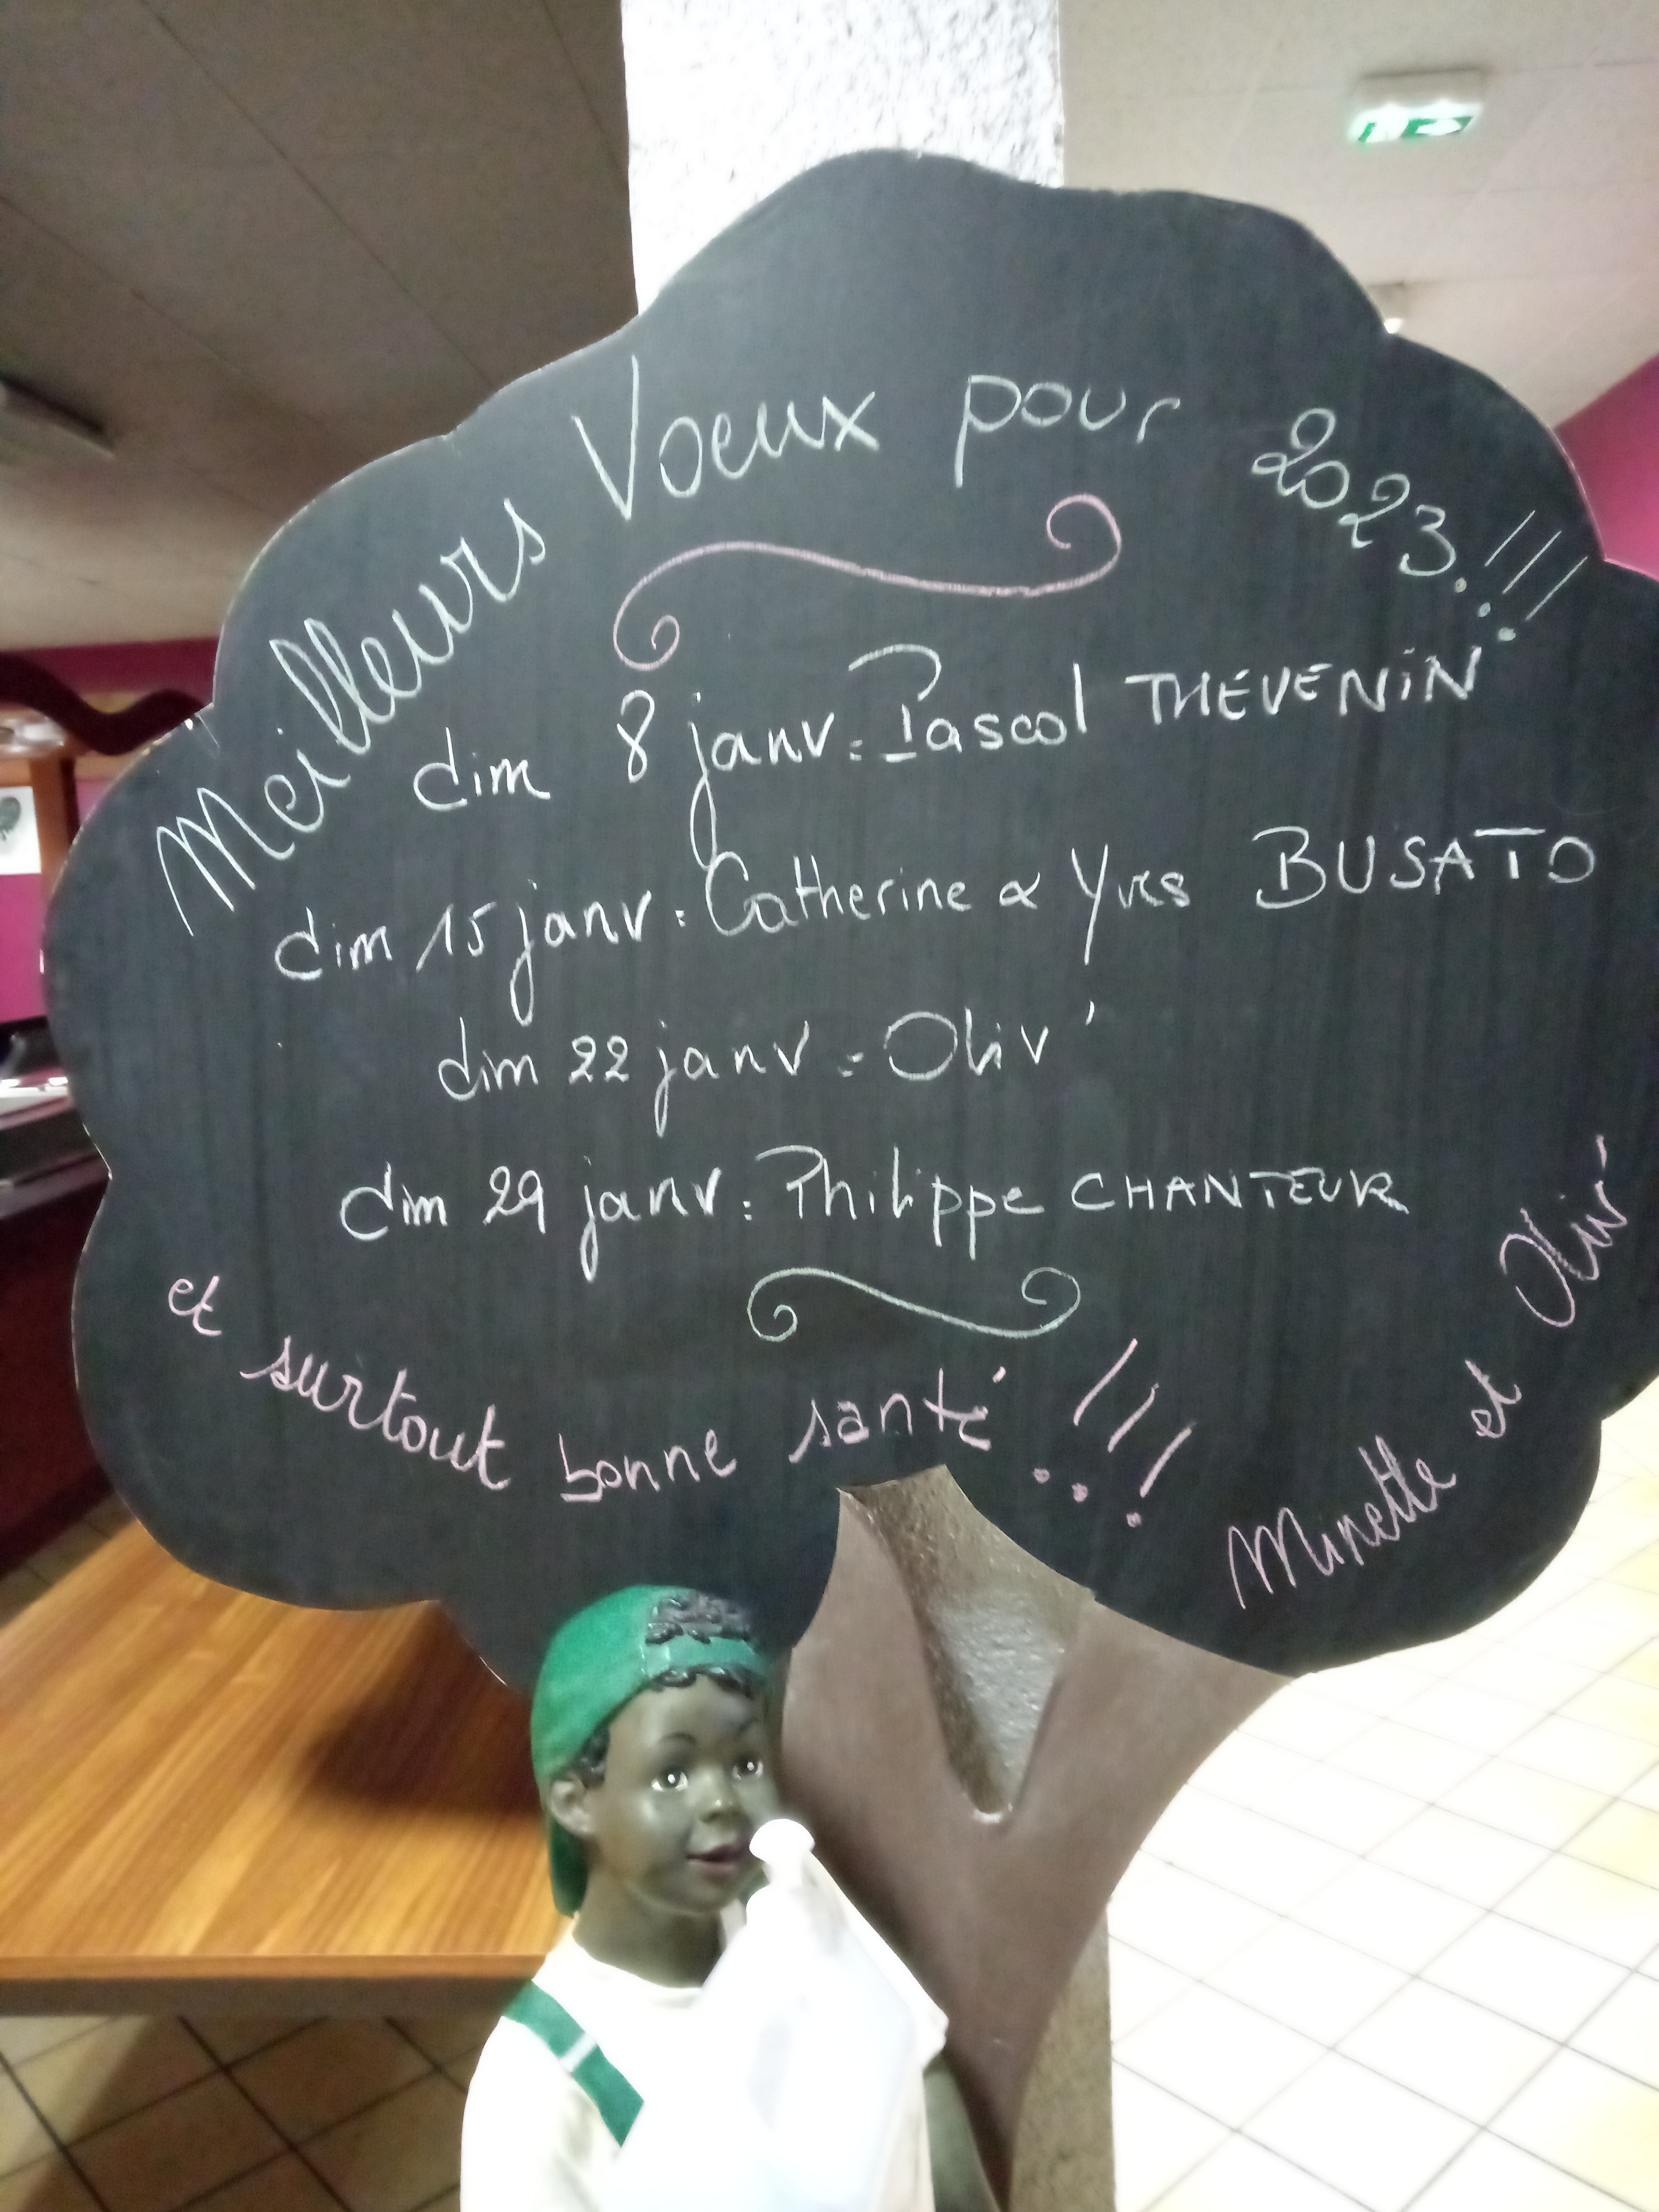 Meilleurs Voeux pour 2023!!!
dim 8 janv: Pascal THEVENIN
dim 15 janv: Catherine & Yves BUSATO
dim 22 janv: Oliv'
dim 29 janv: Philippe CHANTEUR
et surtout bonne santé!!!
Minette et Oliv'